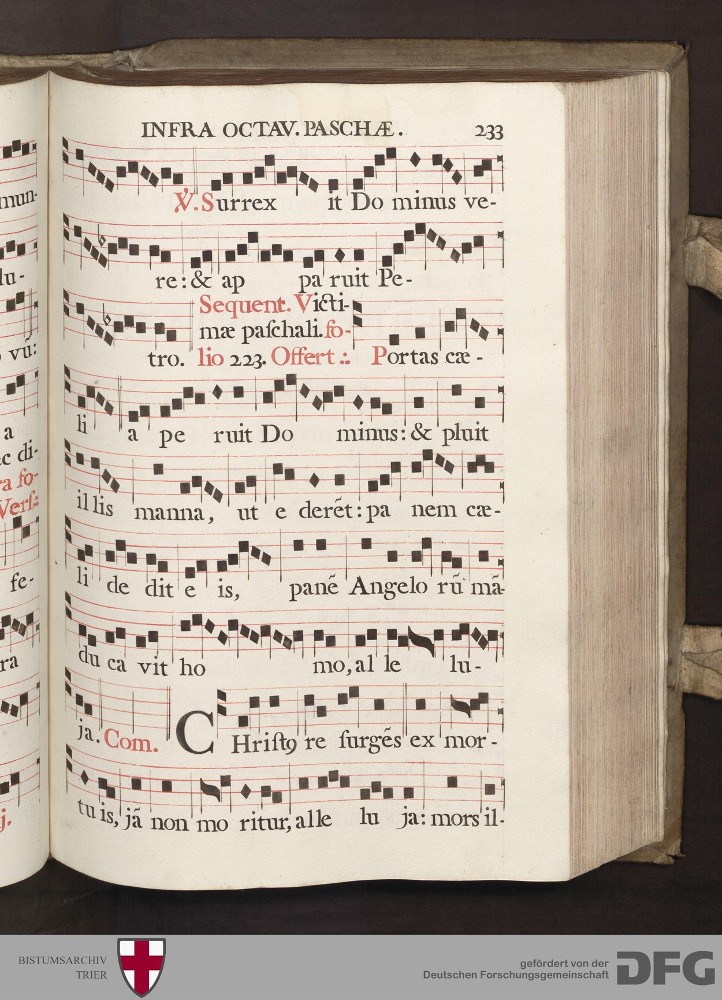 mun-
lu-
vū:
a
c di-
ra fo-
Vers:
fe-
ra
j.
INFRA OCTAV. PASCHÆ. 233
℣. Surrex it Do minus ve-
re: & ap pa ruit Pe-
Sequent. Victi-
mæ paſchali. fo-
tro. lio 223. Offert ∴ Portas cæ-
li a pe ruit Do minus: & pluit
il lis manna, ut e derēt: pa nem cæ-
li de dit e is, panē Angelo rū mā-
du ca vit ho mo, al le lu-
ja. Com. CHriſtꝯ re ſurgēs ex mor-
tu is, jā non mo ritur, alle lu ja: mors il-
BISTUMSARCHIV
TRIER
gefördert von der
Deutschen Forschungsgemeinschaft
DFG